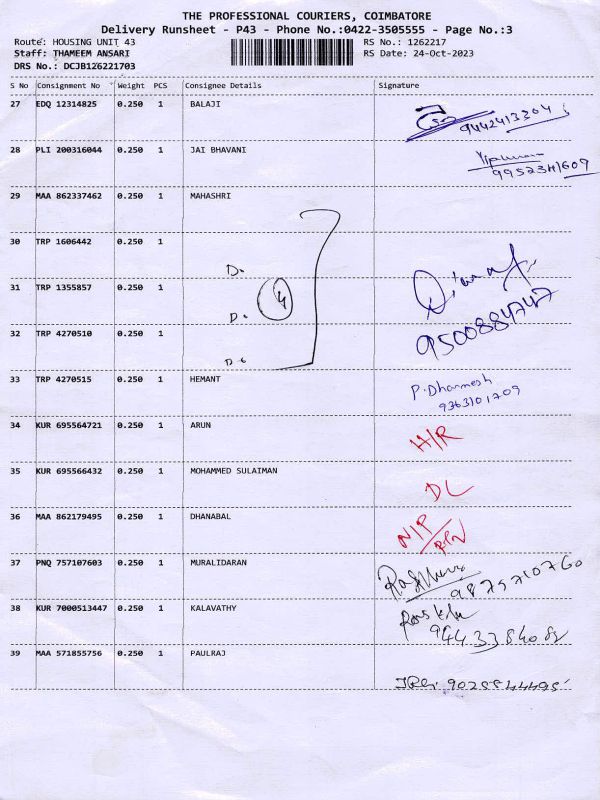 THE PROFESSIONAL COURIERS, COIMBATORE
Delivery Runsheet - P43 - Phone No.:0422-3505555 - Page No.:3
Route: HOUSING UNIT 43 RS No.: 1262217
Staff: THAMEEM ANSARI RS Date: 24-Oct-2023
DRS No.: DCJB126221703
S No Consignment No Weight PCS Consignee Details Signature
27 EDQ 12314825 0.250 1 BALAJI
9442413304
28 PLI 200316044 0.250 1 JAI BHAVANI
9952341609
29 MAA 862337462 0.250 1 MAHASHRI
30 TRP 1606442 0.250 1
D.
31 TRP 1355857 0.250 1 4
D.
32 TRP 4270510 0.250 1 9500884747
D.
33 TRP 4270515 0.250 1 HEMANT P. Dharmesh
9363101709
34 KUR 695564721 0.250 1 ARUN H/R
35 KUR 695566432 0.250 1 MOHAMMED SULAIMAN DL
36 MAA 862179495 0.250 1 DHANABAL N/P
37 PNQ 757107603 0.250 1 MURALIDARAN
9875710760
38 KUR 7000513447 0.250 1 KALAVATHY
39 MAA 571855756 0.250 1 PAULRAJ